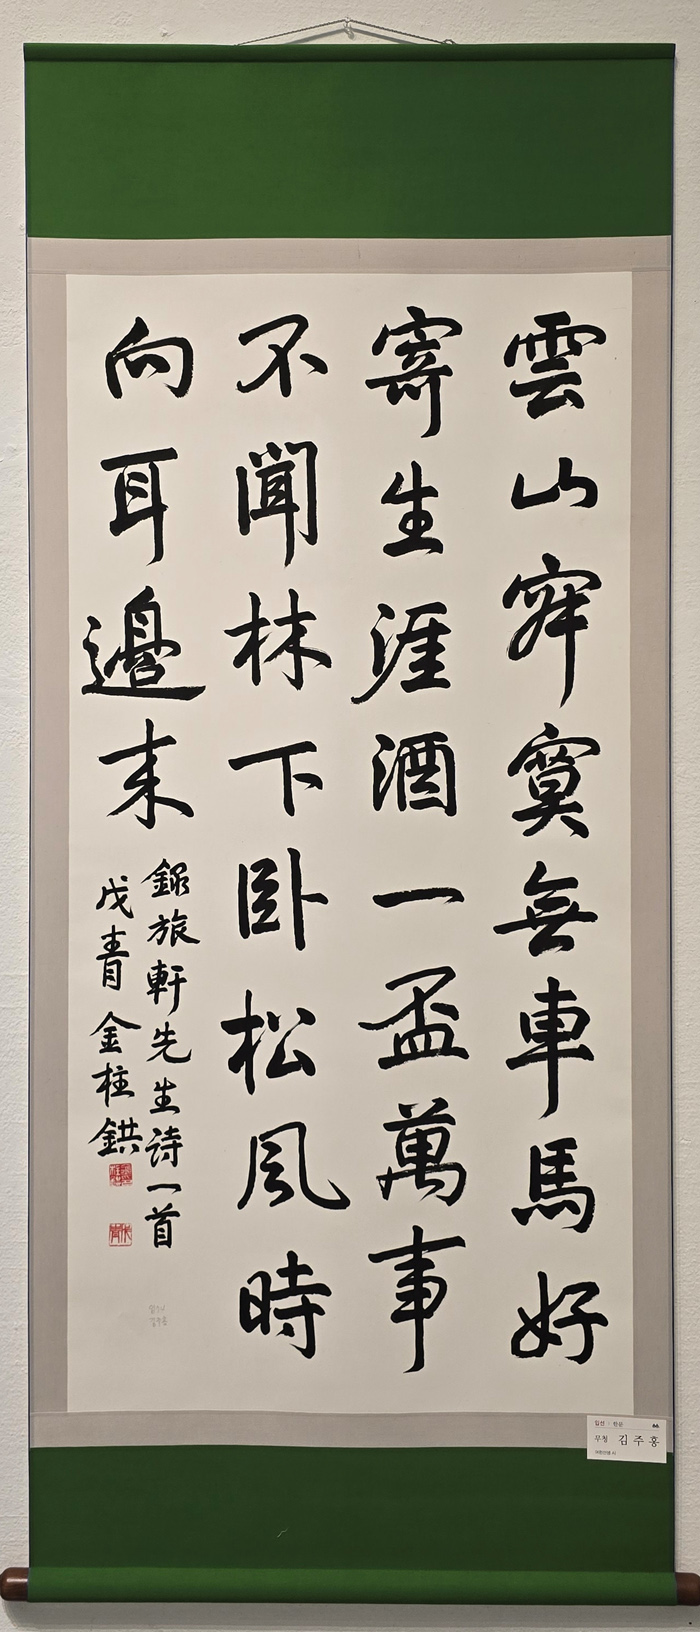 雲山寂寞無車馬好
寄生涯酒一盃萬事
不聞林下卧松風時
向耳邊来
錄旅軒先生詩一首
戊青 金柱鉷
입선 · 한문
무청 김주홍
여헌선생 시